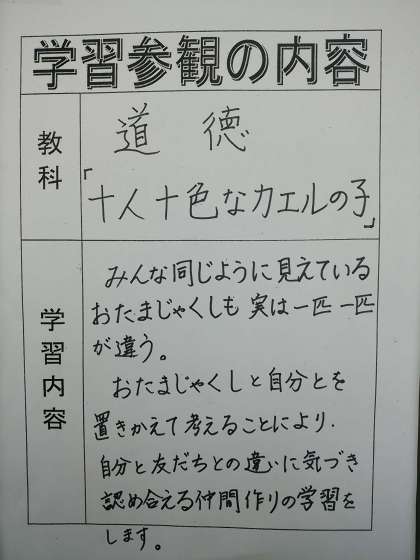 学習参観の内容
教科
道徳
「十人十色なカエルの子」
学習内容
みんな同じように見えている
おたまじゃくしも実は一匹一匹
が違う。
おたまじゃくしと自分とを
置きかえて考えることにより、
自分と友だちとの違いに気づき
認め合える仲間作りの学習を
します。